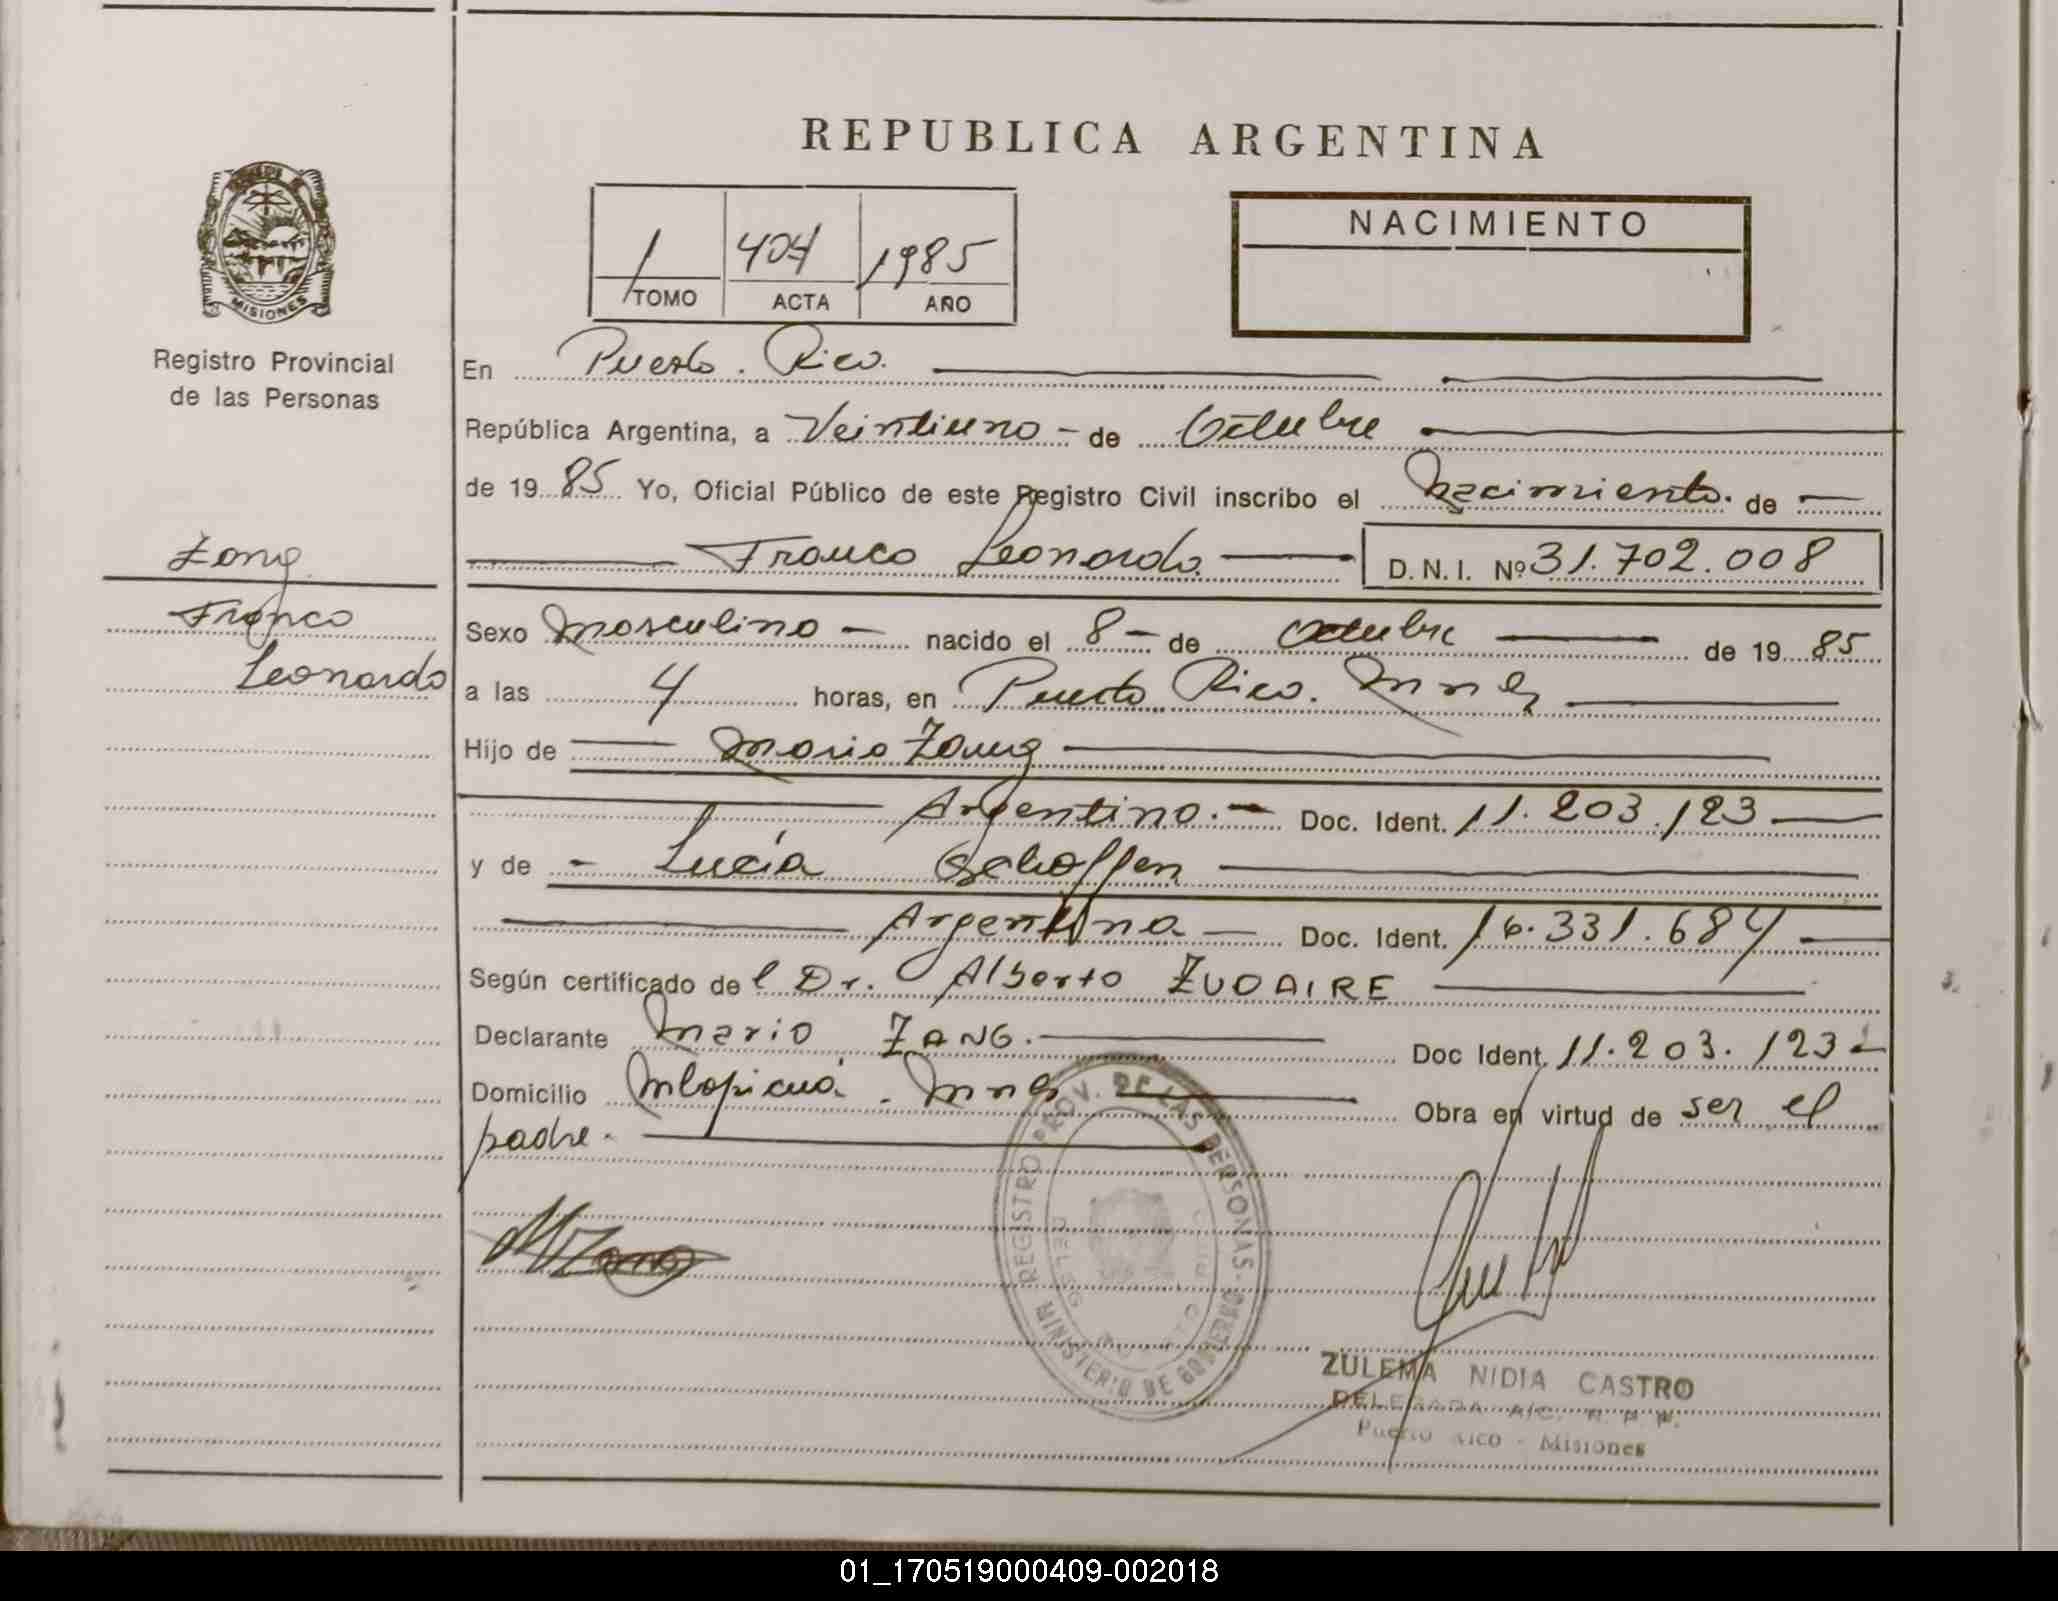 REPUBLICA ARGENTINA
MISIONES
Registro Provincial
de las Personas
1 404 1985
TOMO ACTA AÑO
NACIMIENTO
En Puerto Rico.
República Argentina, a Veintiuno - de Octubre
de 19 85 Yo, Oficial Público de este Registro Civil inscribo el Nacimiento. de
Franco Leonardo. D.N.I. Nº 31.702.008
Zang
Franco
Leonardo
Sexo Masculino - nacido el 8 - de Octubre de 19 85
a las 4 horas, en Puerto Rico. Mnes
Hijo de Mario Zang
Argentino. - Doc. Ident. 11.203.123
y de - Lucía Schoffen
Argentina Doc. Ident. 16.331.684
Según certificado del Dr. Alberto ZUDAIRE
Declarante Mario ZANG. Doc Ident. 11.203.123
Domicilio Mbopicuá. Mnes Obra en virtud de ser el
padre.
REGISTRO PROV. DE LAS PERSONAS
MINISTERIO DE GOBIERNO
MZang
ZULEMA NIDIA CASTRO
DELEGADA A/C. R. P. P.
Puerto Rico - Misiones
01_170519000409-002018